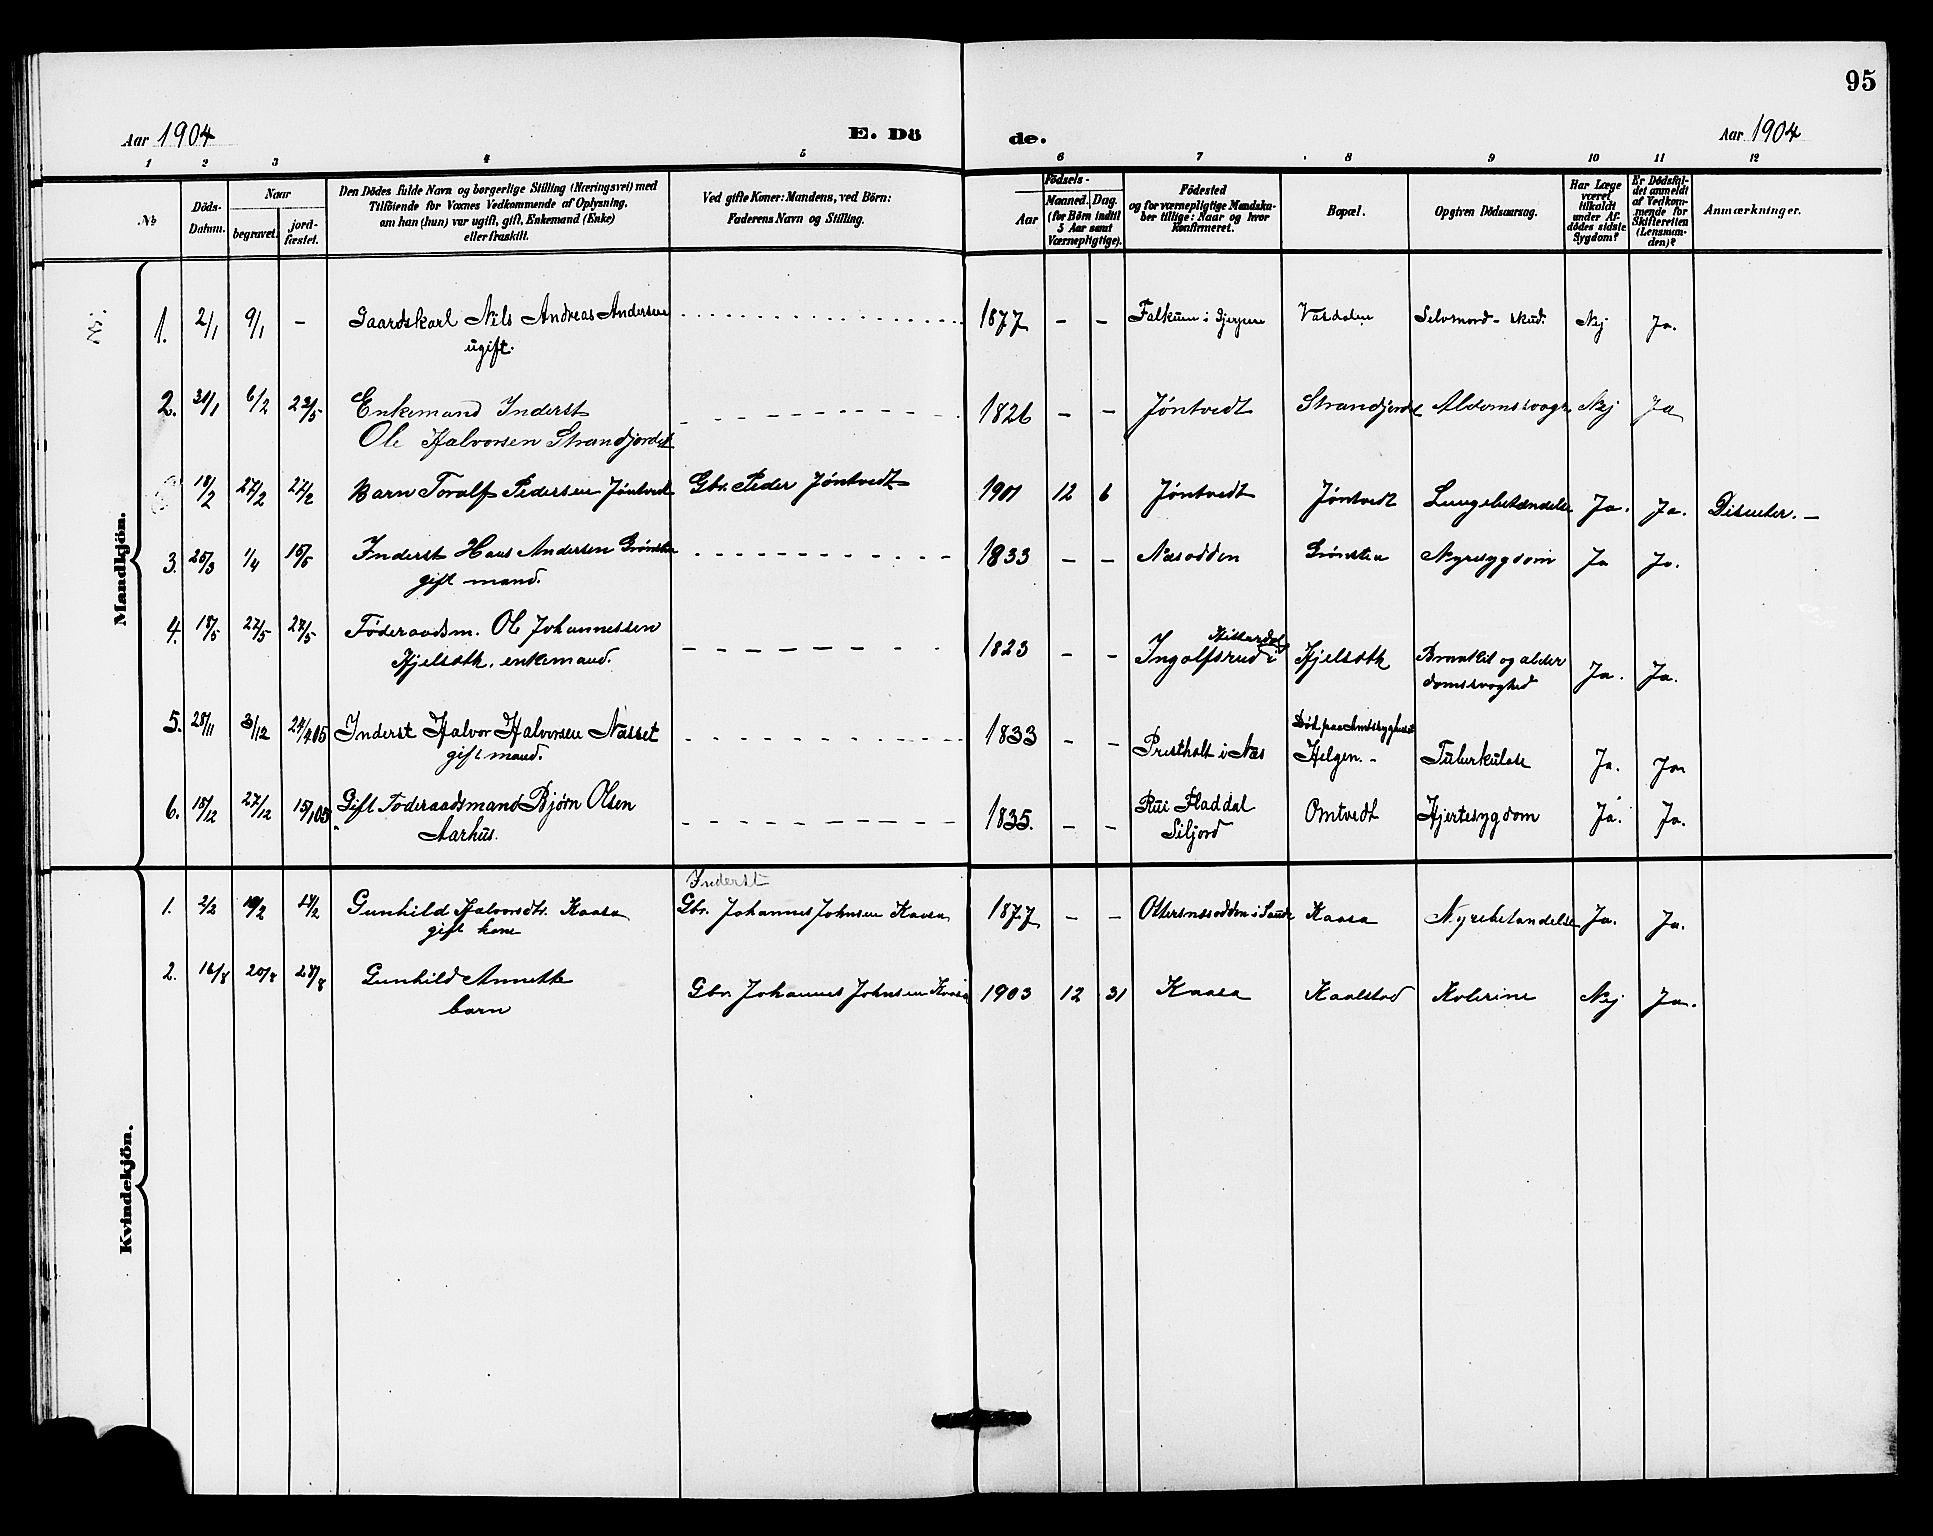 95
Aar 1904
E. Dö
de.
Aar 1904
1 2 3 4 5 6 7 8 9 10 11 12
№
Döds-Datum.
Naar
begravet.
jord-fæstet.
Den Dödes fulde Navn og borgerlige Stilling (Næringsvei) med
Tilföiende for Voxnes Vedkommende af Oplysning,
om han (hun) var ugift, gift, Enkemand (Enke)
eller fraskilt.
Ved gifte Koner: Mandens, ved Börn:
Faderens Navn og Stilling.
Födsels-
Aar
Maaned. Dag.
(for Börn indtil
5 Aar samt
Værnepligtige).
Födested
og for værnepligtige Mandska-
ber tillige: Naar og hvor
konfirmeret.
Bopæl.
Opgiven Dödsaarsag.
Har Læge
været
tilkaldt
under Af-
dödes sidste
Sygdom?
Er Dödsfal-
det anmeldt
af Vedkom-
mende for
Skifteretten
(Lensman-
den)?
Anmærkninger.
Mandkjön.
1. 2/1 9/1 - Gaardskarl Nils Andreas Andersen 1877 - - Falkum i Gjerpen Vasdalen Selvmord - skud. Nej Ja.
ugift.
2. 31/1 6/2 23/5 Enkemand Inderst 1826 - - Jøntvedt Strandjordet Nej Ja
Ole Halvorsen Strandjordet
18/2 27/2 27/2 Barn Toralf Pedersen Jøntvedt Gbr. Peder Jøntvedt 1901 12 6 Jøntvedt Jøntvedt Lungebetændelse Ja. Ja. Disenter. -
3. 25/3 1/4 15/5 Inderst Hans Andersen Grønsten 1833 - - Næsodden Grønsten Nyresygdom Ja Ja.
gift mand.
4. 18/5 27/5 27/5 Føderaadsm. Ole Johannessen 1823 - - Ingolfsrud i Hitterdal Kjelsoth Brantkil og alder
Kjelsoth, enkemand. domssvaghed Ja. Ja.
5. 25/11 3/12 24/4 05 Inderst Halvor Halvorsen Næsset 1833 - - Prestholt i Næs Død paa Amtssyghuset
gift mand. Helgen. - Tuberkulose Ja. Ja
6. 18/12 27/12 15/1 05 Gift Føderaadsmand Bjørn Olsen 1835. - - Rui Fladdal Omtvedt Hjertesygdom Ja. Ja.
Aarhus. Siljord
Kvindekjön.
Inderst
1. 2/2 14/2 Gunhild Halvorsdtr. Kaasa Gbr. Johannes Johnsen Kaasa 1877 - - Ottersnæsodden i Saude Kaasa Nyrebetændelse Ja. Ja.
gift kone
2. 16/8 20/8 28/8 Gunhild Annette Gbr. Johannes Johnsen Kaasa 1903 12 31 Kaasa Kaalstad Kolerine Nej Ja.
barn